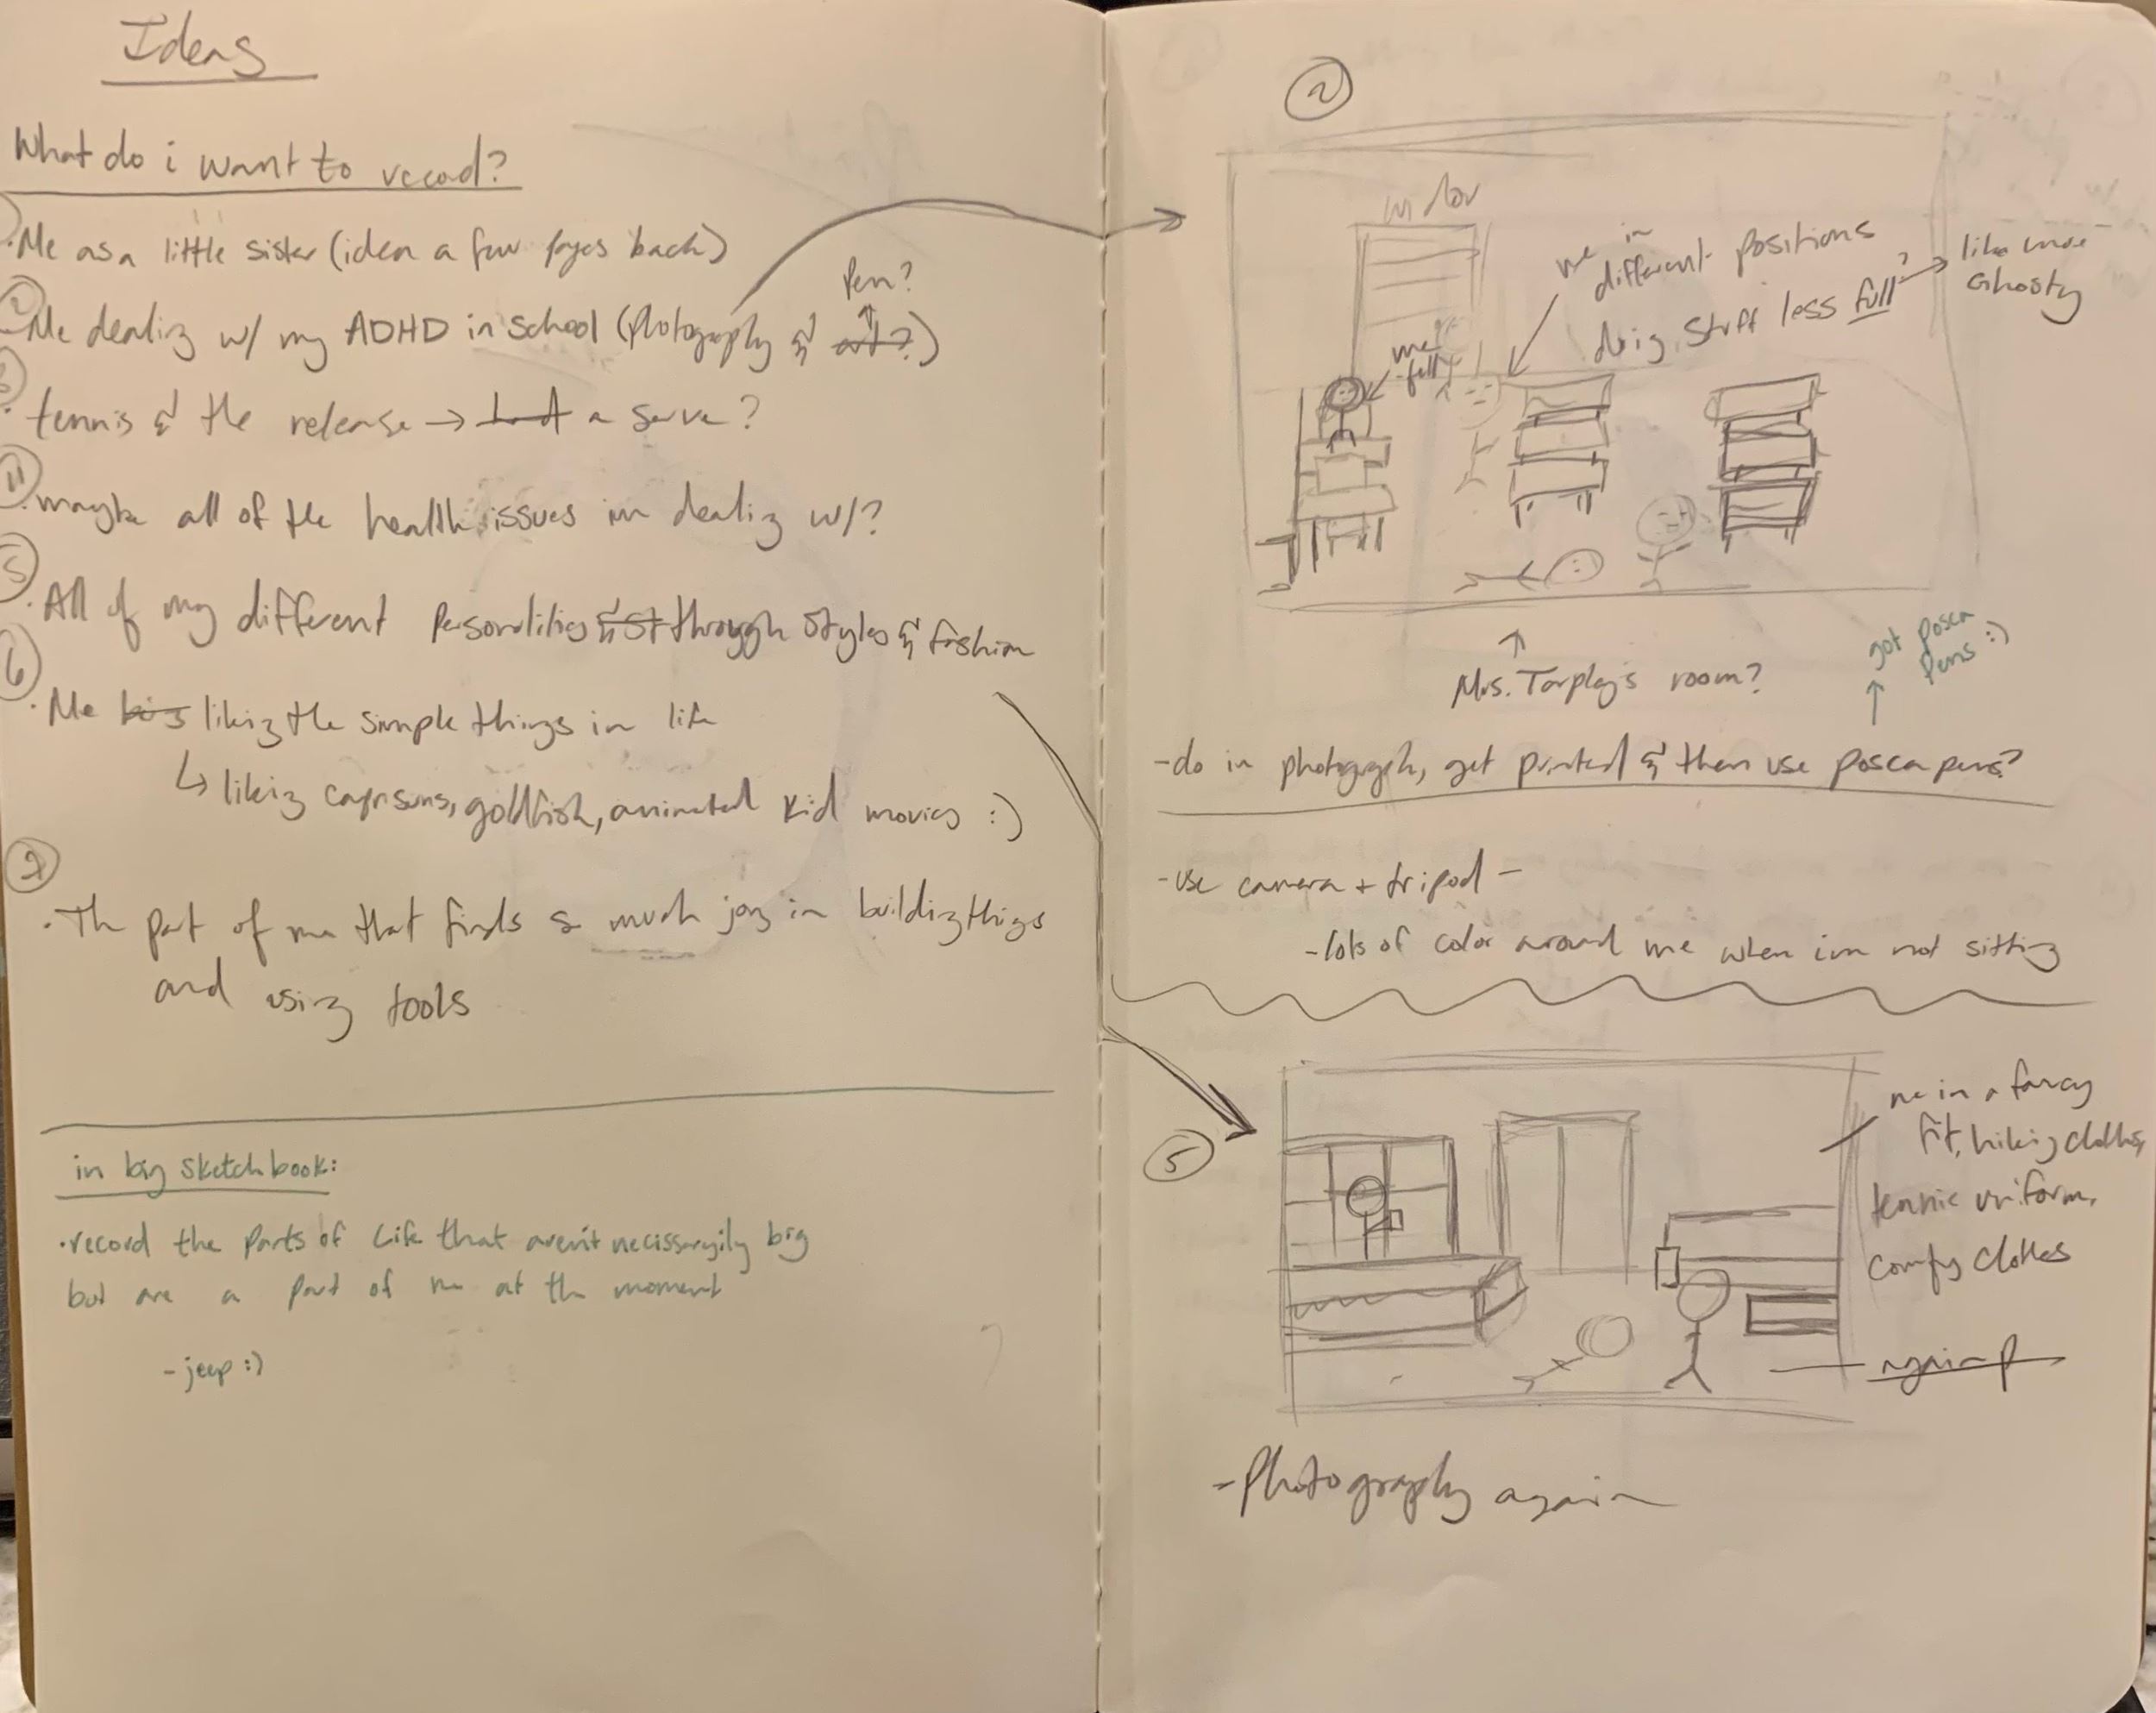 Ideas
What do i want to record?
· Me as a little sister (idea a few pages back)
Pen?
② Me dealing w/ my ADHD in school (photography & art?)
③ · tennis & the release → a serve?
④ · maybe all of the health issues im dealing w/?
⑤ · All of my different personalities & st through styles & fashion
⑥ · Me liking the simple things in life
↳ liking caprisuns, goldfish, animated kid movies :)
⑦
· The part of me that finds so much joy in building things
and using tools
in big sketchbook:
· record the parts of life that aren't necissaryily big
but are a part of me at the moment
- jeep :)
②
me in
different positions
doing stuff less full?
→ like more
Ghosty
me
full
↑
Mrs. Tarpley's room?
got posca
pens :)
- do in photograph, get printed & then use posca pens?
- use camera + tripod -
- lots of color around me when im not sitting
⑤
me in a fancy
fit, hiking clothes,
tennis uniform,
comfy clothes
- Photography again